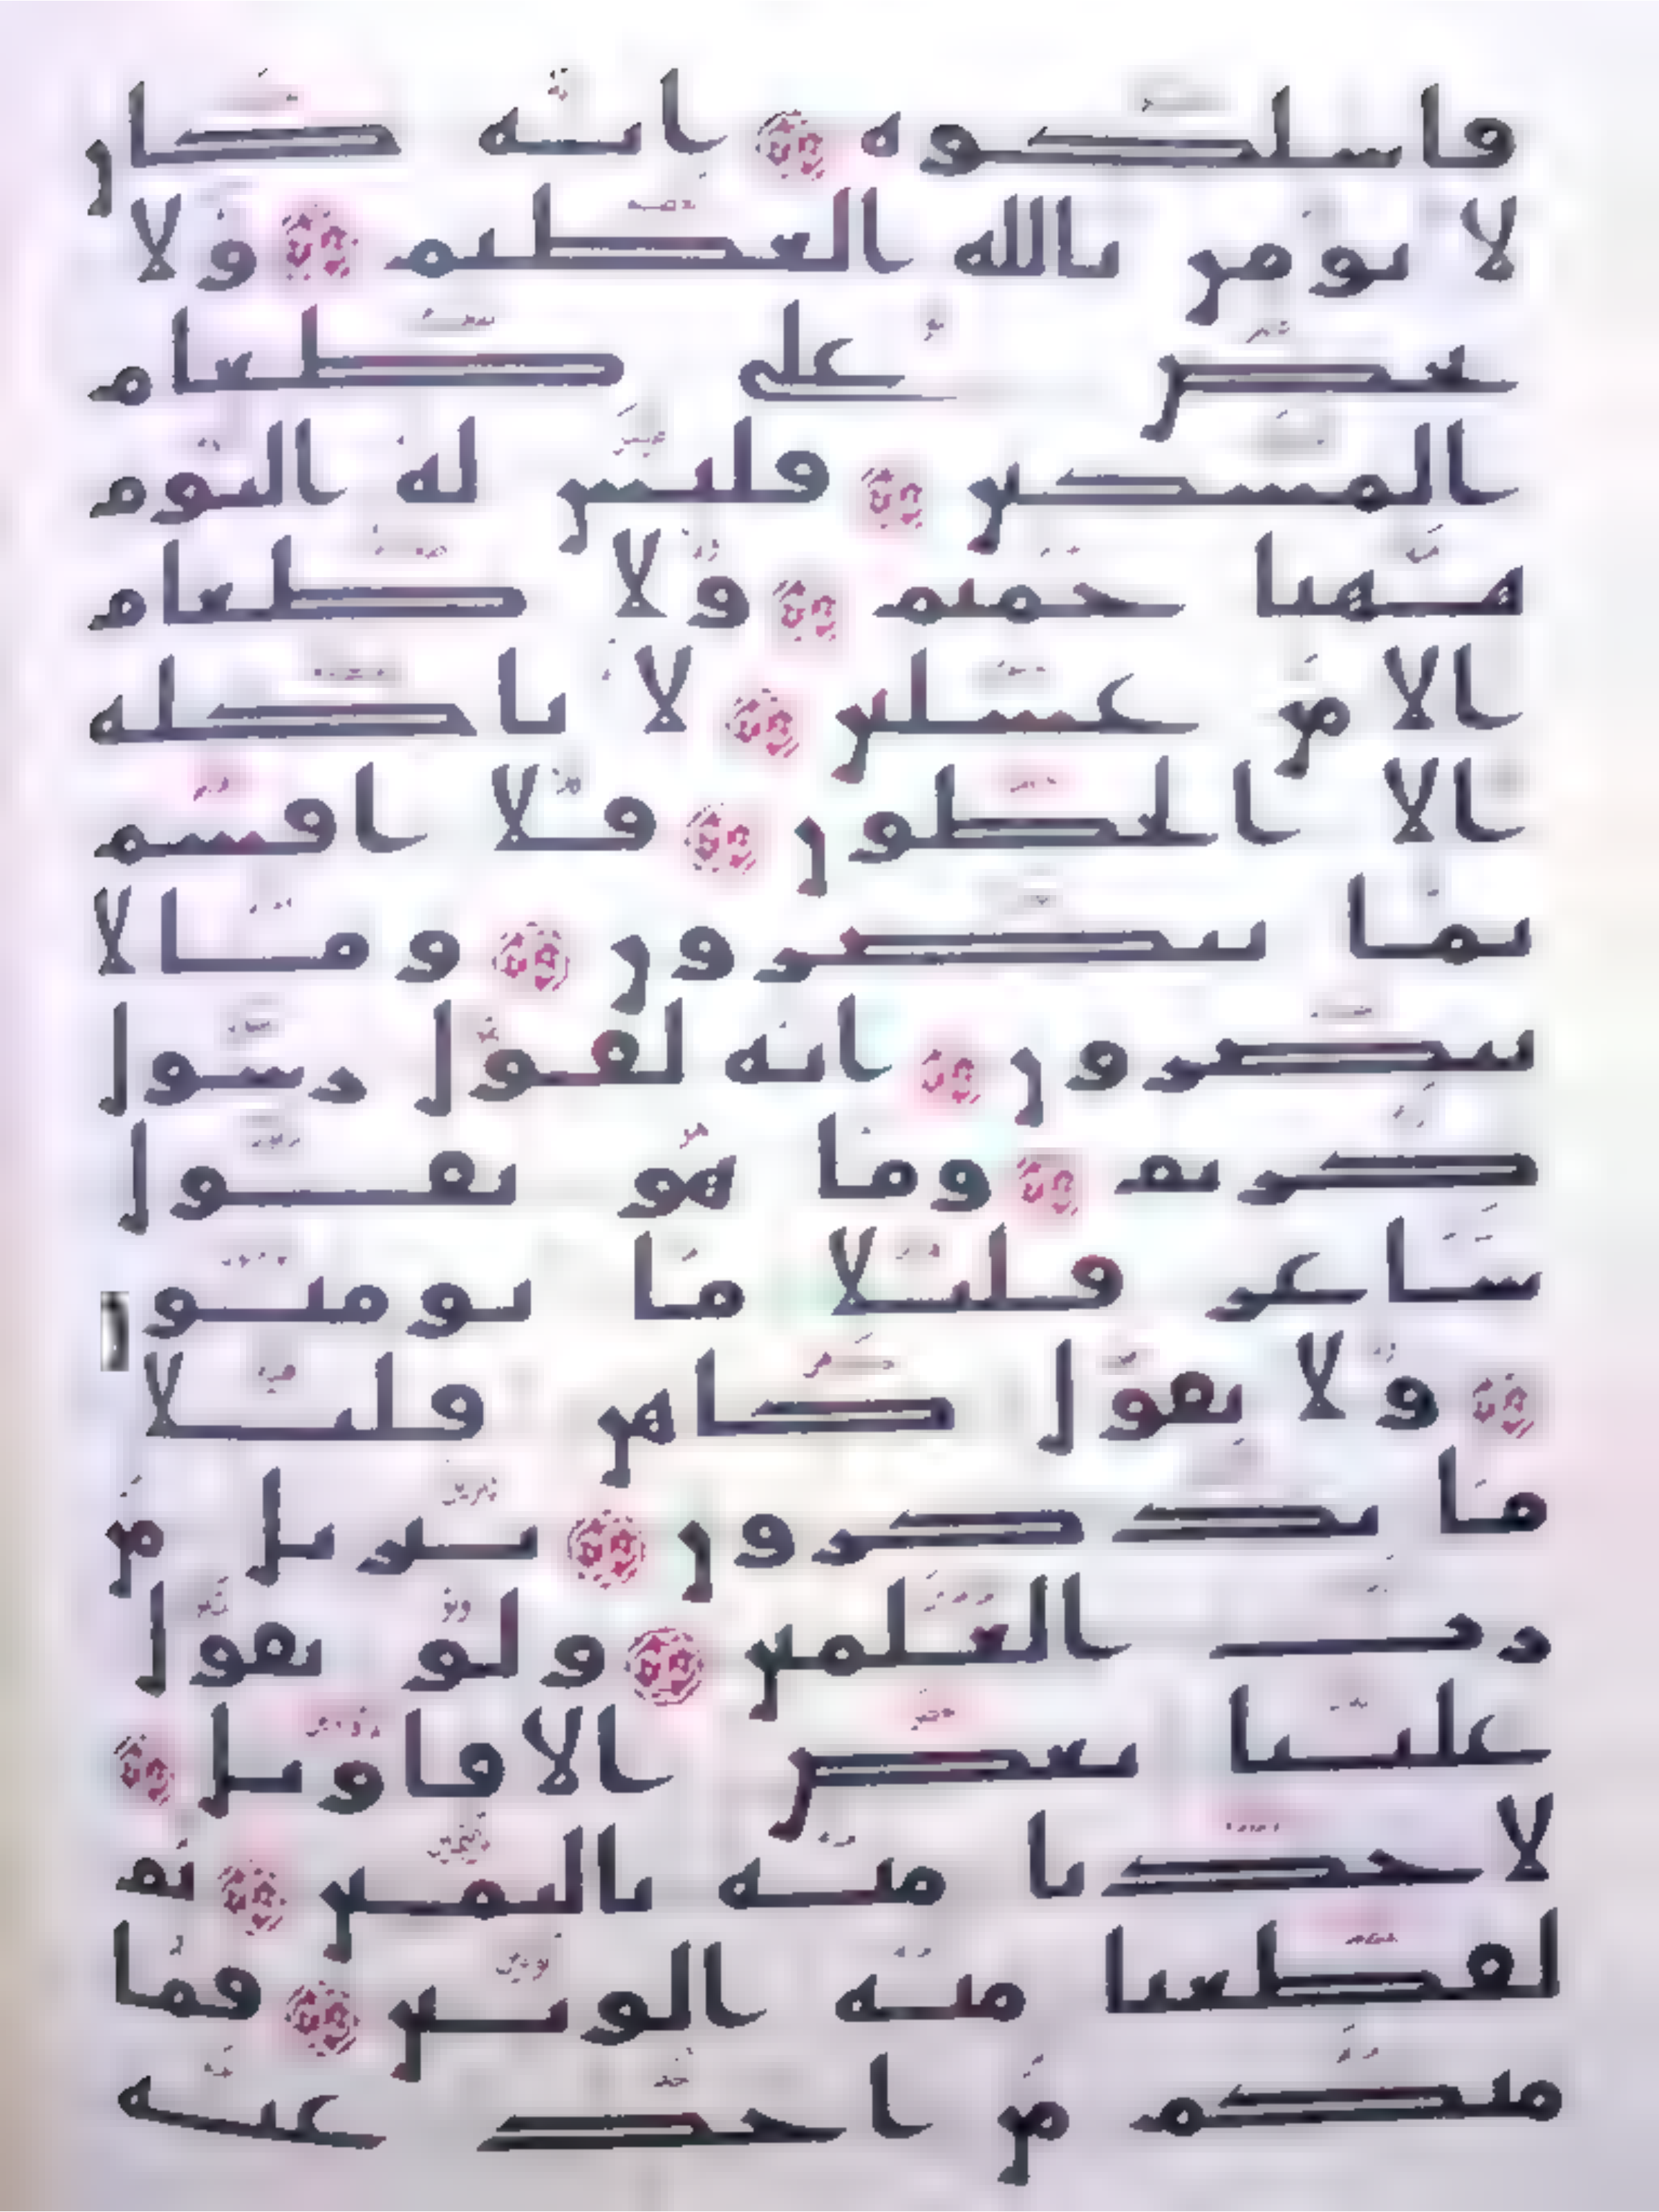 فاسلكوه انه كان
لا يومن بالله العظيم ولا
يحض على طعام
المسكين فليس له اليوم
ههنا حميم ولا طعام
الا من غسلين لا ياكله
الا الخطون فلا اقسم
بما تبصرون وما لا
تبصرون انه لقول رسول
كريم وما هو بقول
شاعر قليلا ما تومنون
ولا بقول كاهن قليلا
ما تذكرون تنزيل من
رب العلمين ولو تقول
علينا بعض الاقاويل
لاخذنا منه باليمين ثم
لقطعنا منه الوتين فما
منكم من احد عنه